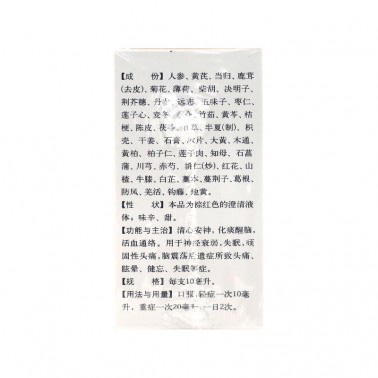 【成 份】人参、黄芪、当归、鹿茸
(去皮)、菊花、薄荷、柴胡、决明子、
荆芥穗、丹 远志、五味子、枣仁、
莲子心、麦冬 竹茹、黄芩、桔
梗、陈皮、茯苓 草、半夏(制)、枳
壳、干姜、石膏、冰片、大黄、木通、
黄柏、柏子仁、莲子肉、知母、石菖
蒲、川芎、赤芍、 仁(炒)、红花、山
楂、牛膝、白芷、藁本、蔓荆子、葛根、
防风、羌活、钩藤、地黄。
【性 状】本品为棕红色的澄清液
体；味辛、甜。
【功能与主治】清心安神，化痰醒脑，
活血通络。用于神经衰弱，失眠，顽
固性头痛，脑震荡后遗症所致头痛、
眩晕、健忘、失眠等症。
【规 格】每支10毫升。
【用法与用量】口服，轻症一次10毫
升，重症一次20毫升，一日2次。